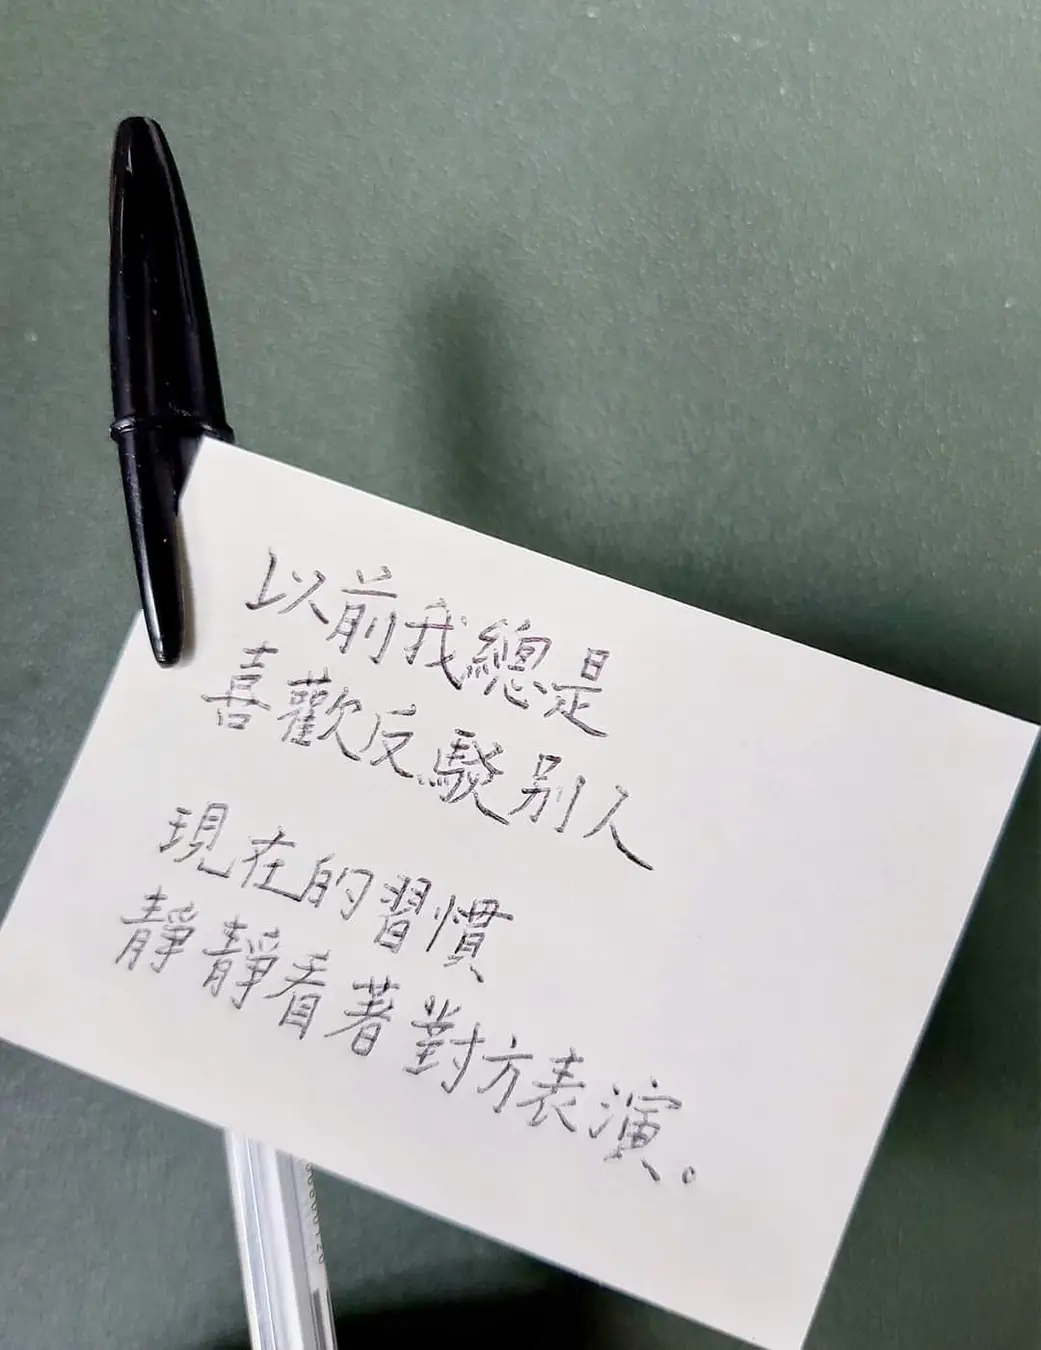 以前我總是
喜歡反駁別人
現在的習慣
靜靜看著對方表演。